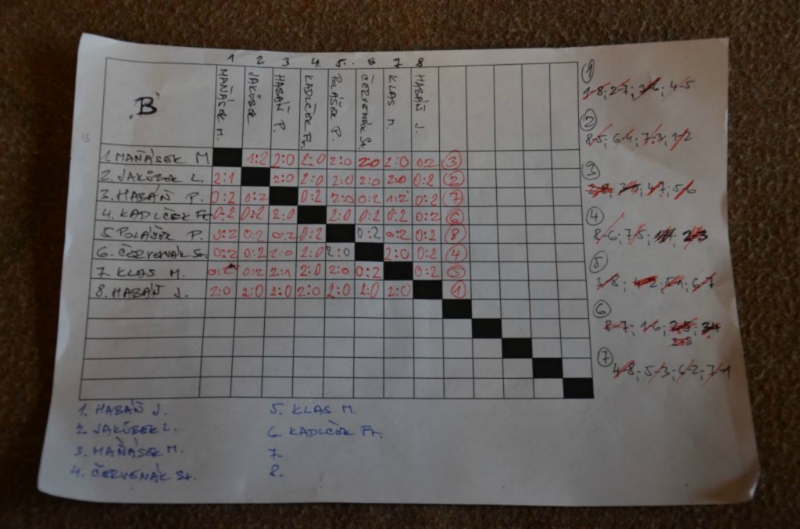 1 2 3 4 5. 6 7 8
„B"
MAŇÁSEK M. JAKŮBEK HABÁŇ P. KADLČEK Fr. POLÁŠEK P. ČERVENÁK St. KLAS M. HABÁŇ J.
1. MAŇÁSEK M 1:2 2:0 2:0 2:0 2:0 2:0 0:2 3
2. JAKŮBEK L. 2:1 2:0 2:0 2:0 2:0 2:0 0:2 2
3. HABÁŇ P. 0:2 0:2 0:2 2:0 0:2 1:2 0:2 7
4. KADLČEK Fr. 0:2 0:2 2:0 2:0 0:2 0:2 0:2 6
5. POLÁŠEK P. 0:2 0:2 0:2 0:2 0:2 0:2 0:2 8
6. ČERVENÁK St. 0:2 0:2 2:0 2:0 2:0 2:0 0:2 4
7. KLAS M. 0:2 0:2 2:1 2:0 2:0 0:2 0:2 5
8. HABÁŇ J. 2:0 2:0 2:0 2:0 2:0 2:0 2:0 1
1
1-8; 2-7; 3-6; 4-5
2
8-5; 6-4; 7-3; 1-2
3
4-7; 5-6
4
8-6; 7-5; 2-3
5
3-8; 5-1; 6-7
6
8-7; 1-6; 2-5; 3-4
2-5
7
4-8; 5-3; 6-2; 7-1
1. HABÁŇ J.
2. JAKŮBEK L.
3. MAŇÁSEK M.
4. ČERVENÁK St.
5. KLAS M.
6. KADLČEK Fr.
7.
8.